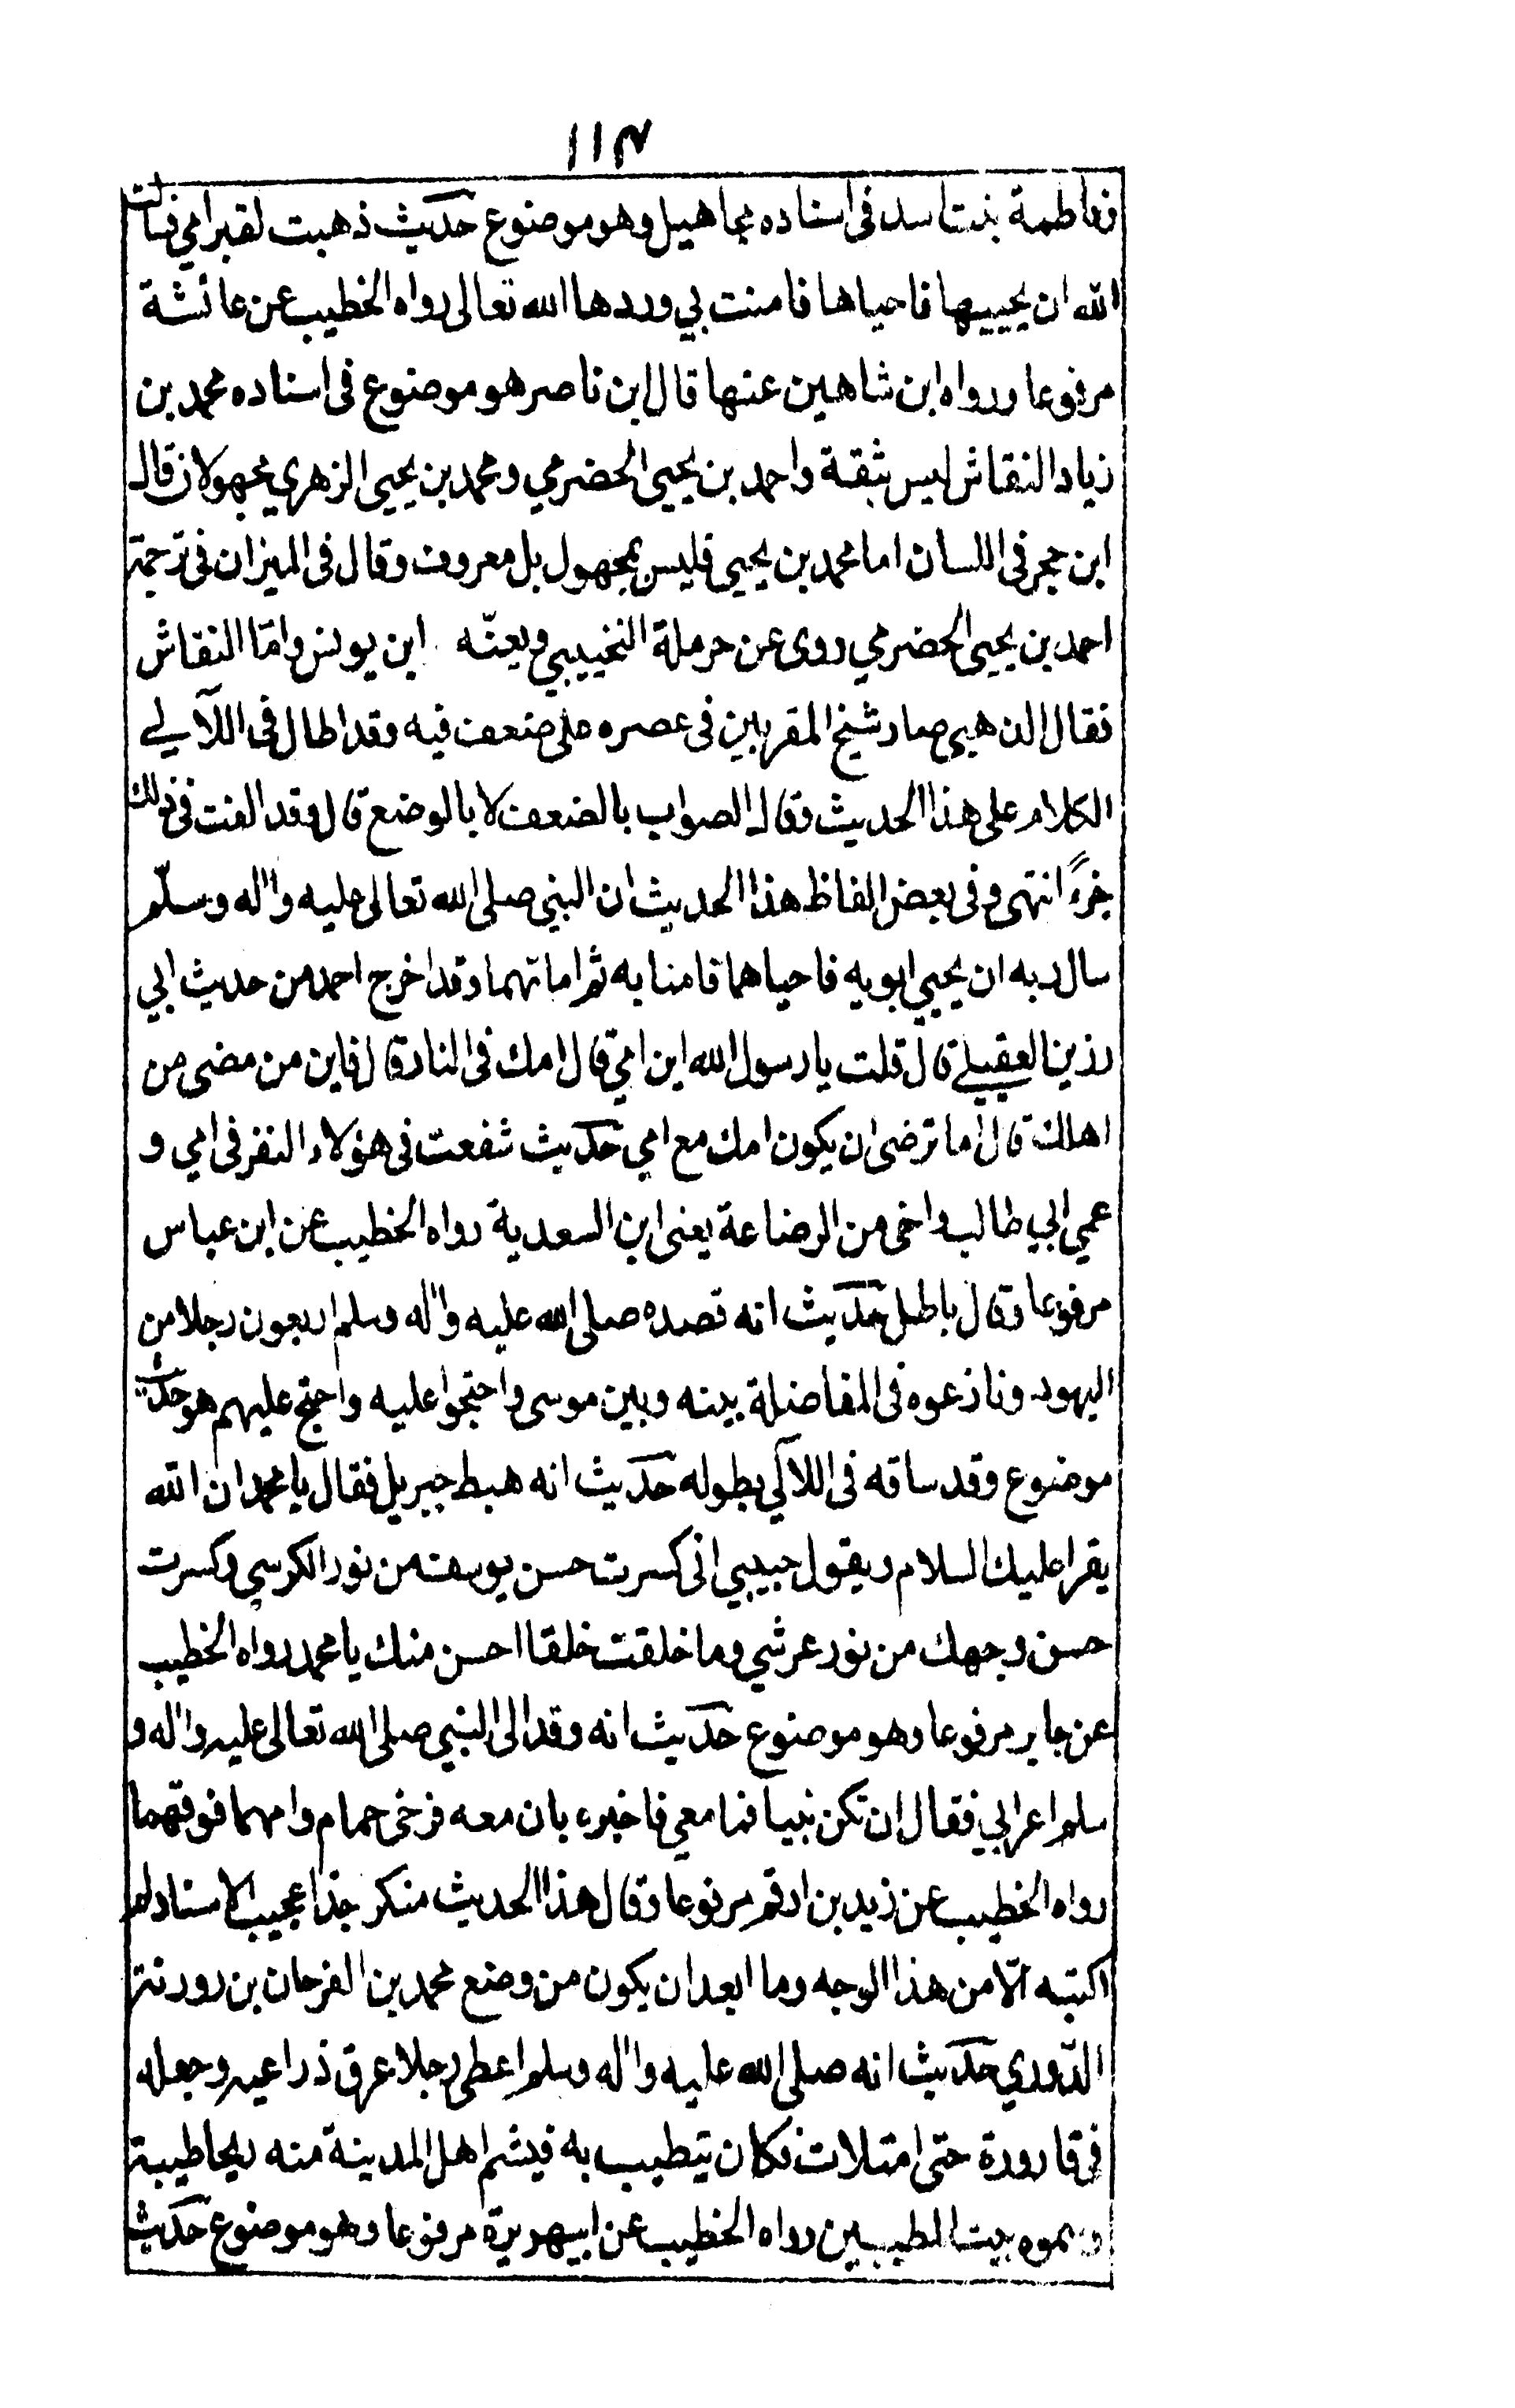 ١١٣
ففاطمة بنت اسد فى اسناده مجاهيل وهو موضوع حديث ذهبت لقبر امي فسالت
الله ان يحييها فاحياها فامنت بي وردها الله تعالى رواه الخطيب عن عائشة
مرفوعا ورواه ابن شاهين عنها قال ابن ناصر هو موضوع فى اسناده محمد بن
زياد النقاش ليس بثقة واحمد بن يحيى الحضرمي ومحمد بن يحيى الزهري مجهولان قال
ابن حجر فى اللسان اما محمد بن يحيى فليس بمجهول بل معروف وقال فى الميزان فى ترجمة
احمد بن يحيى الحضرمي روى عن حرملة التخييبي ابن يونس وامّا النقاش
فقال الذهبي صار شيخ المقريين فى عصره على ضعف فيه وقد اطال فى اللآلي
الكلام على هذا الحديث وقال الصواب بالضعف لا بالوضع قال وقد الفت فى ذلك
جزءً انتهى وفى بعض الفاظ هذا الحديث ان النبي صلى الله تعالى عليه واله وسلّم
سال ربه ان يحيي ابويه فاحياهما فامنا به ثم اماتهما وقد اخرج احمد من حديث ابي
رزين العقيلي قال قلت يا رسول الله اين امي قال امك فى النار قال فاين من مضى من
اهلك قال اما ترضى ان يكون امك مع امي حديث شفعت فى هؤلاء النفر فى امي و
عمي ابي طالب واخى من الرضاعة يعنى ابن السعدية رواه الخطيب عن ابن عباس
مرفوعا وقال باطل حديث انه قصده صلى الله عليه واله وسلم اربعون رجلا من
اليهود ونازعوه فى المفاضلة بينه وبين موسى واحتجوا عليه واحتج عليهم هو حديث
موضوع وقد ساقه فى اللآلي بطوله حديث انه هبط جبريل فقال يا محمد ان الله
يقرا عليك السلام ويقول حبيبي انى كسرت حسن يوسف من نور الكرسي وكسرت
حسن وجهك من نور عرشي وما خلقت خلقا احسن منك يا محمد رواه الخطيب
عن جابر مرفوعا وهو موضوع حديث انه وفد الى النبي صلى الله تعالى عليه واله و
سلم اعرابي فقال ان تكن نبيا فما معي فاخبره بان معه فرخى حمام وامهما فوقهما
رواه الخطيب عن زيد بن ارقم مرفوعا وقال هذا الحديث منكر جدا عجيب الاسناد لم
اكتبه الّا من هذا الوجه وما ابعد ان يكون من وضع محمد بن الفرحان بن رورنة
الدّوري حديث انه صلى الله عليه واله وسلم اعطى رجلا عرق ذراعيه وجعله
فى قارورة حتى امتلات فكان يتطيب به فيشم اهل المدينة منه ريحا طيبة
وسموه بيت المطيبين رواه الخطيب عن ابيهريرة مرفوعا وهو موضوع حديث